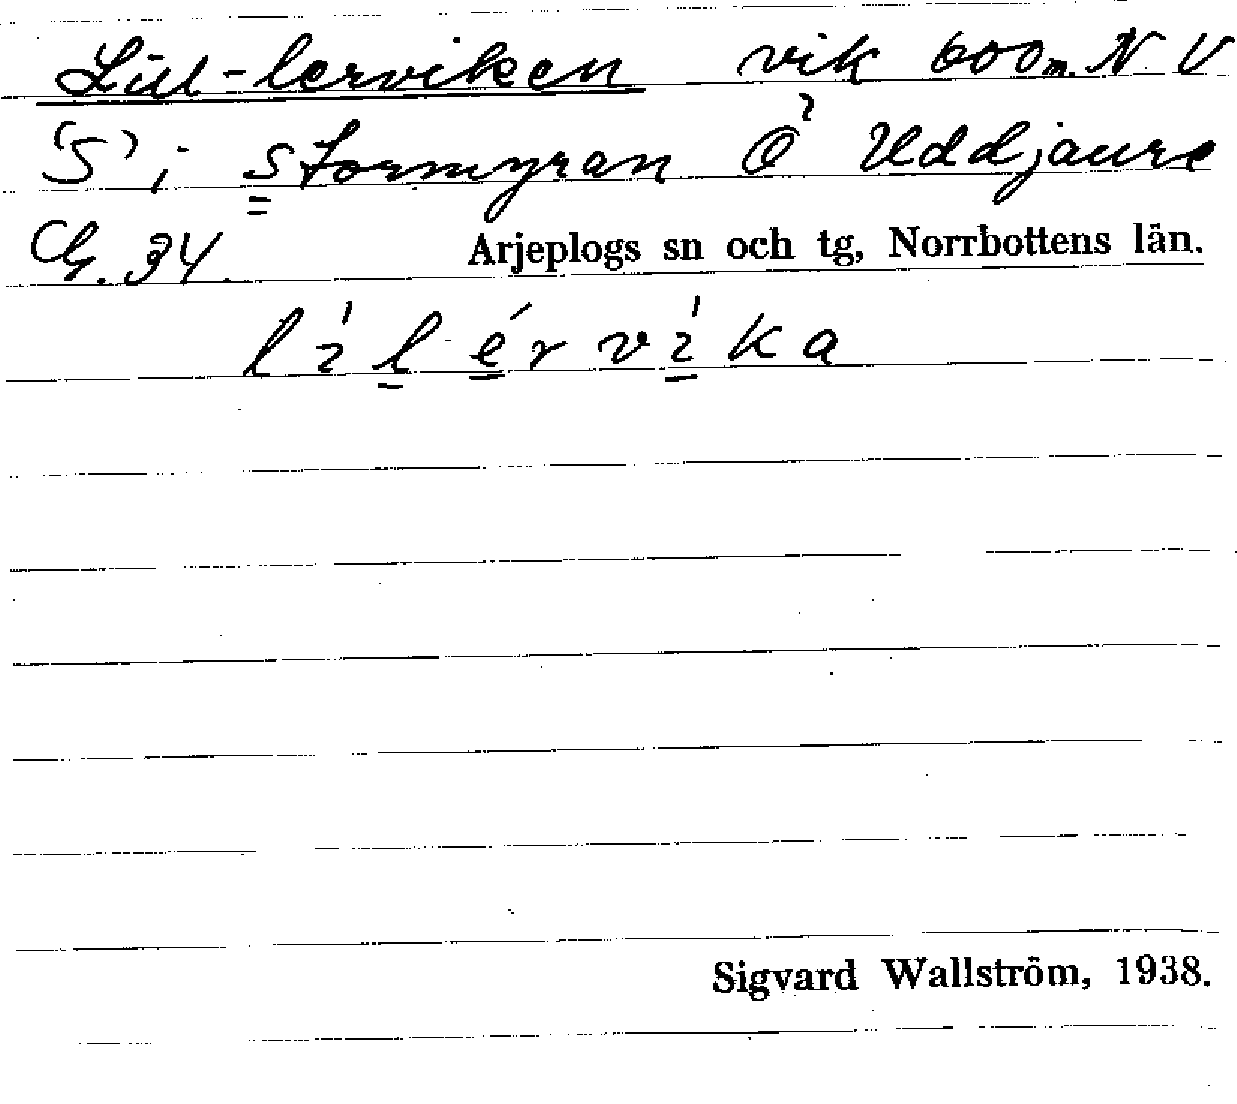 Lill-lerviken vik 600 m. N V
'S' i Stormyran Ö Uddjaure
Arjeplogs sn och tg, Norrbottens län.
lílérvíka
Sigvard Wallström, 1938.